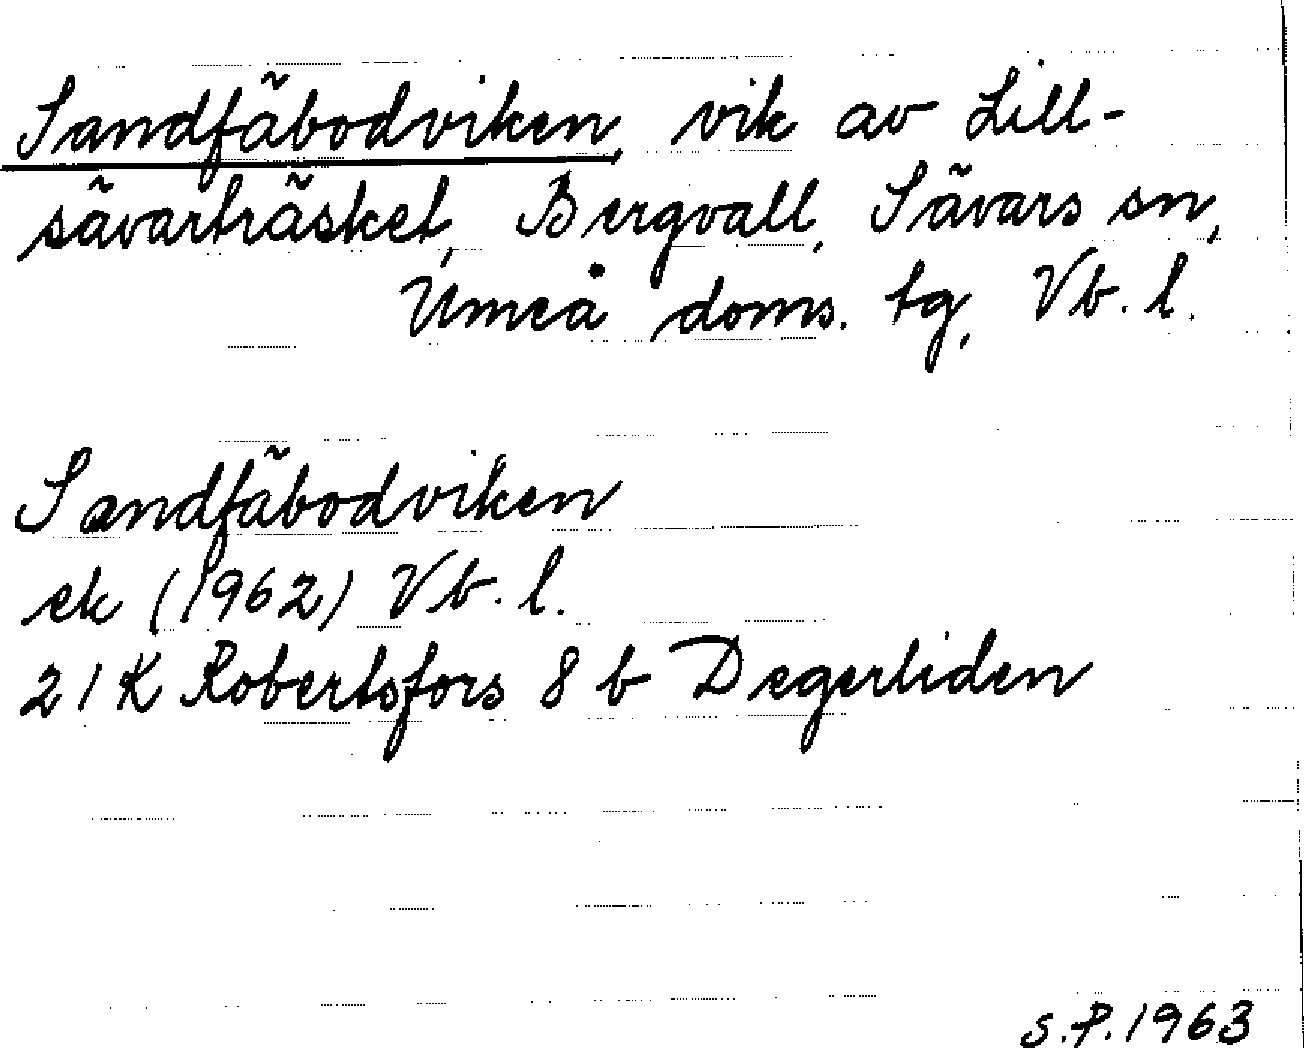 Sandfäbodviken, vik av Lill-
sävarträsket, Bergvall, Sävars sn,
Umeå doms. tg, Vb. l.
Sandfäbodviken
ek (1962) Vb. l.
21 K Robertsfors 8 b Degerliden
S.P. 1963